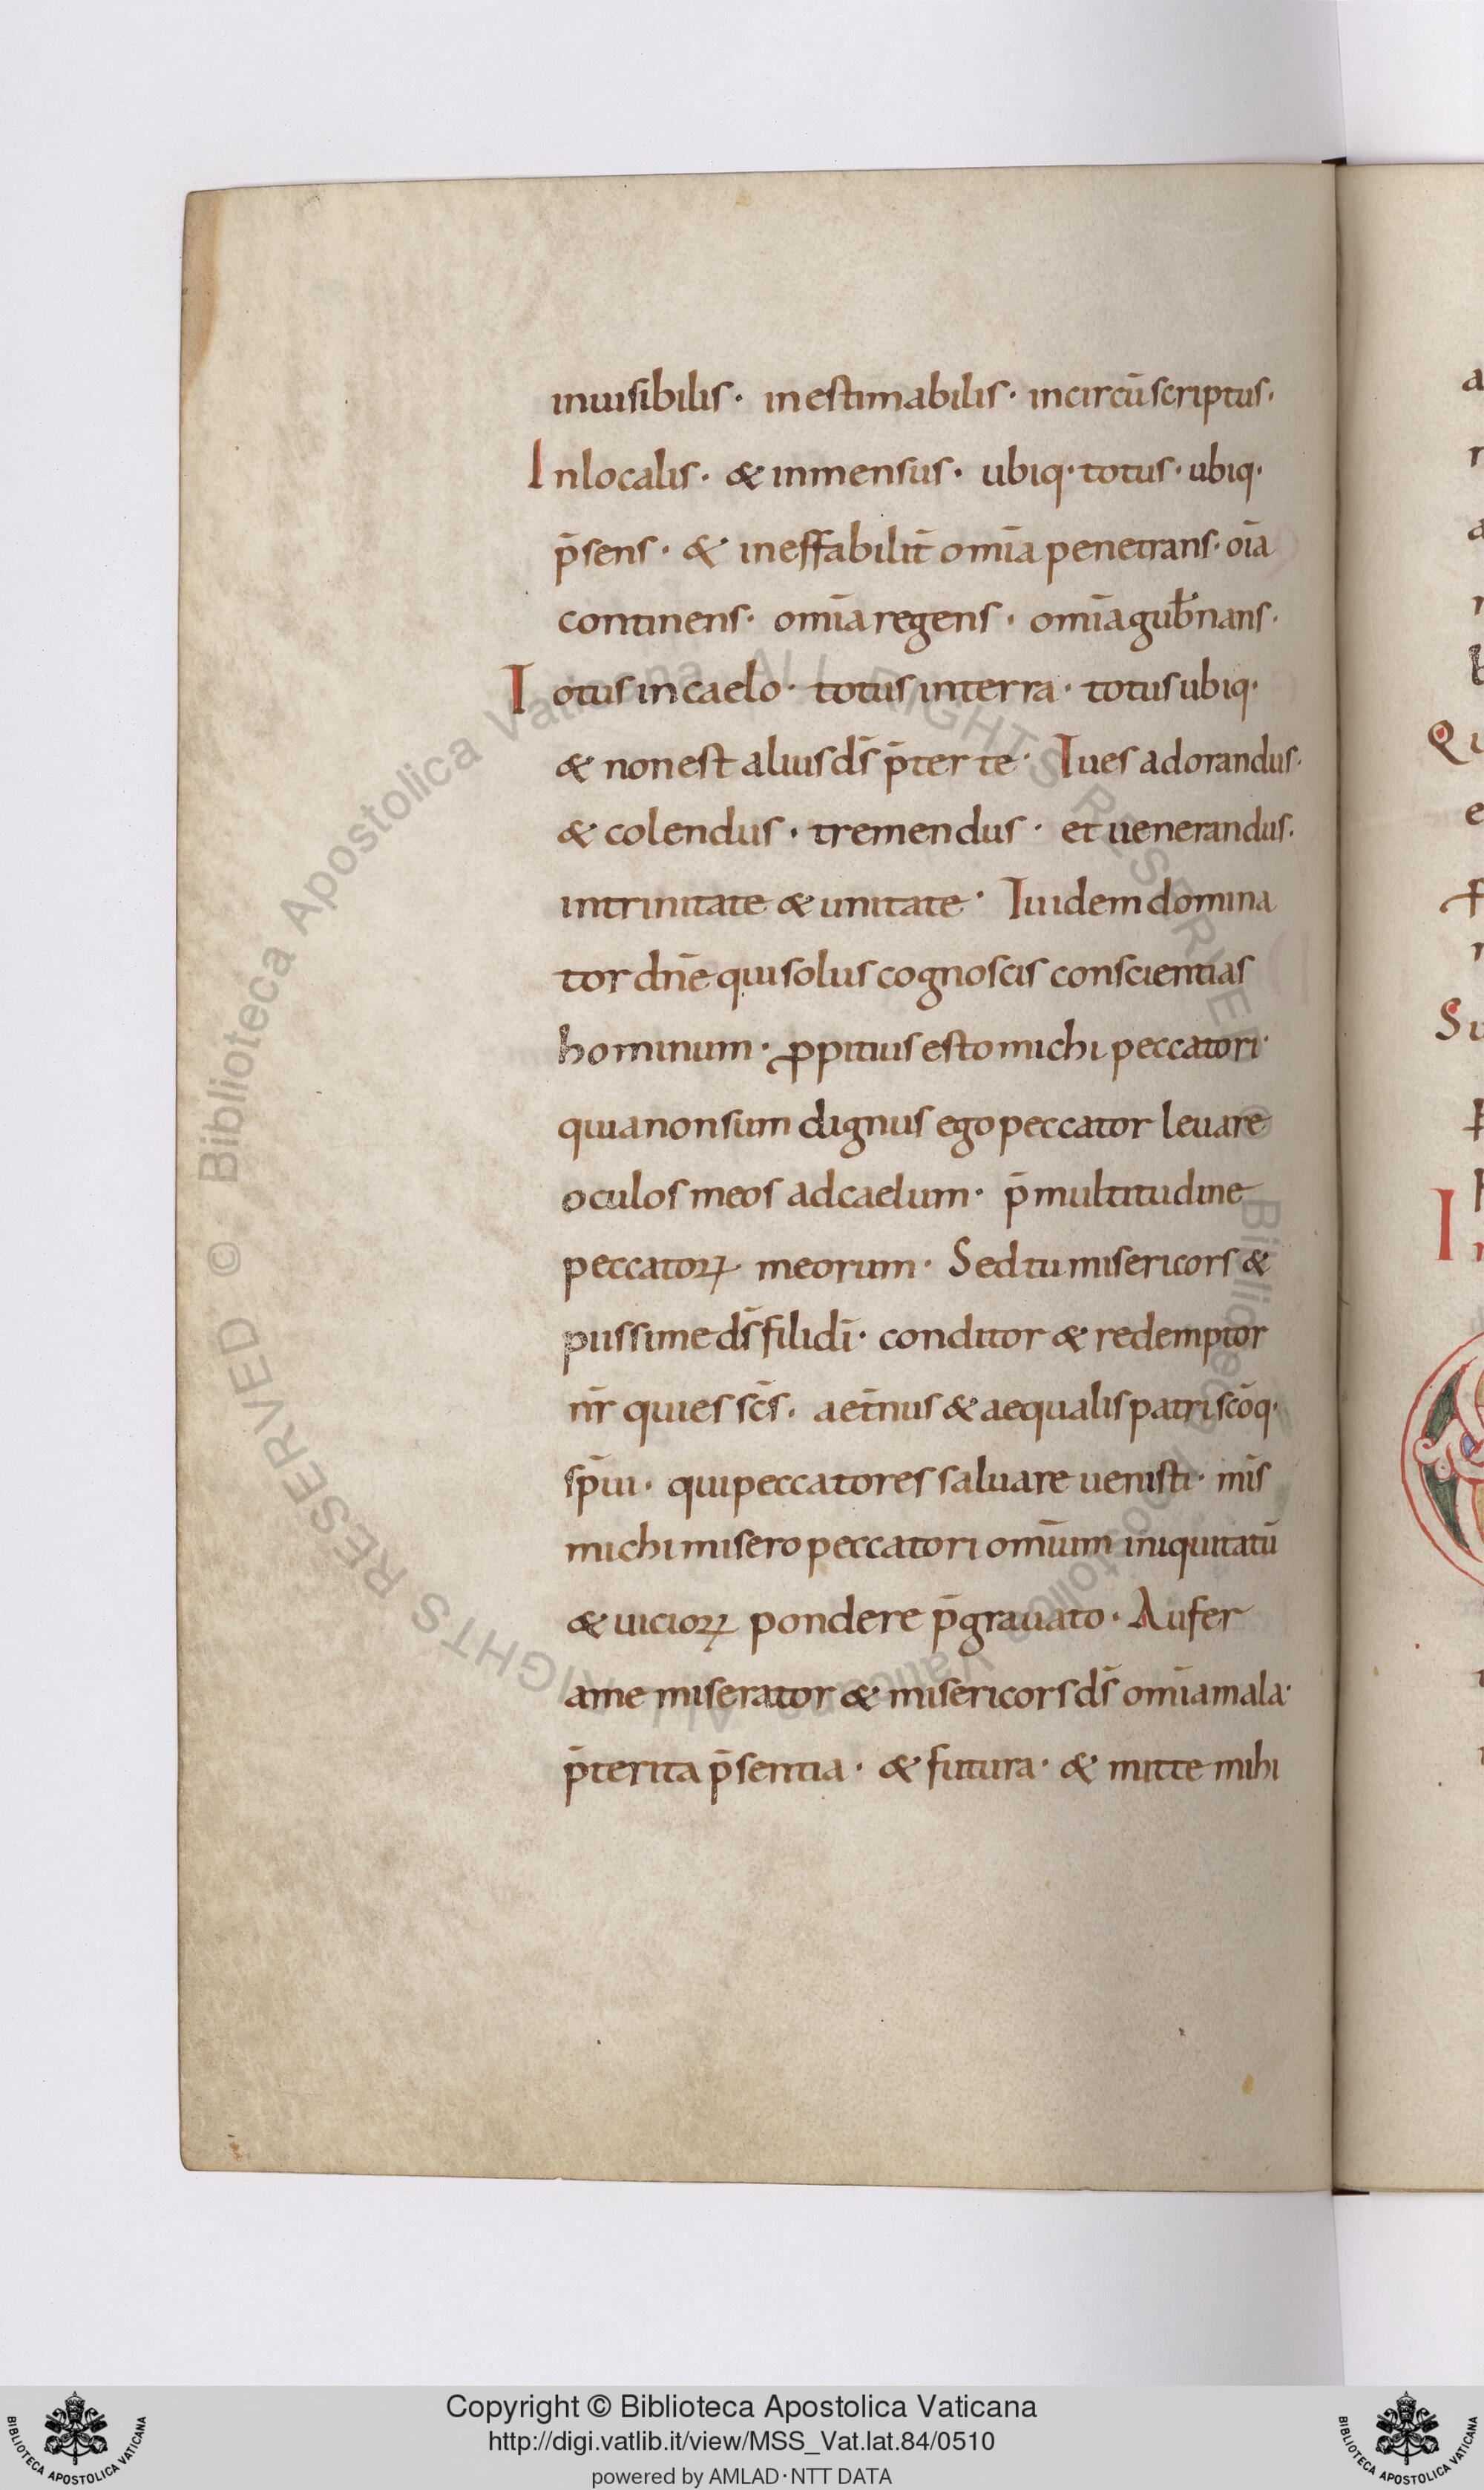 inuisibilis· inestimabilis· incircū scriptus·
Inlocalis· & inmensus· ubiq· totus· ubiq·
p̄sens· & ineffabilit̄ omīa penetrans· oīa
continens· omīa regens· omīa gub̄nans·
Totus in caelo· totus in terra· totus ubiq·
& non est alius ds̄ p̄ter te· Tu es adorandus·
& colendus· tremendus· et uenerandus·
in trinitate & unitate· Tu idem domina
tor dn̄e qui solus cognoscis conscientias
hominum· ꝓpitius esto michi peccatori·
quia non sum dignus ego peccator leuare
oculos meos ad caelum· p̄ multitudine
peccatoꝝ meorum· Sed tu misericors &
piissime ds̄ fili dī· conditor & redemptor
nr̄ qui es scs̄· aet̄nus & aequalis patri scōq·
sp̄ui· qui peccatores saluare uenisti· mis̄
michi misero peccatori omīum iniquitatū
& uicioꝝ pondere p̄grauato· Aufer
a me miserator & misericors ds̄ omīa mala·
p̄terita p̄sentia· & futura· & mitte mihi
Copyright © Biblioteca Apostolica Vaticana
http://digi.vatlib.it/view/MSS_Vat.lat.84/0510
powered by AMLAD·NTT DATA